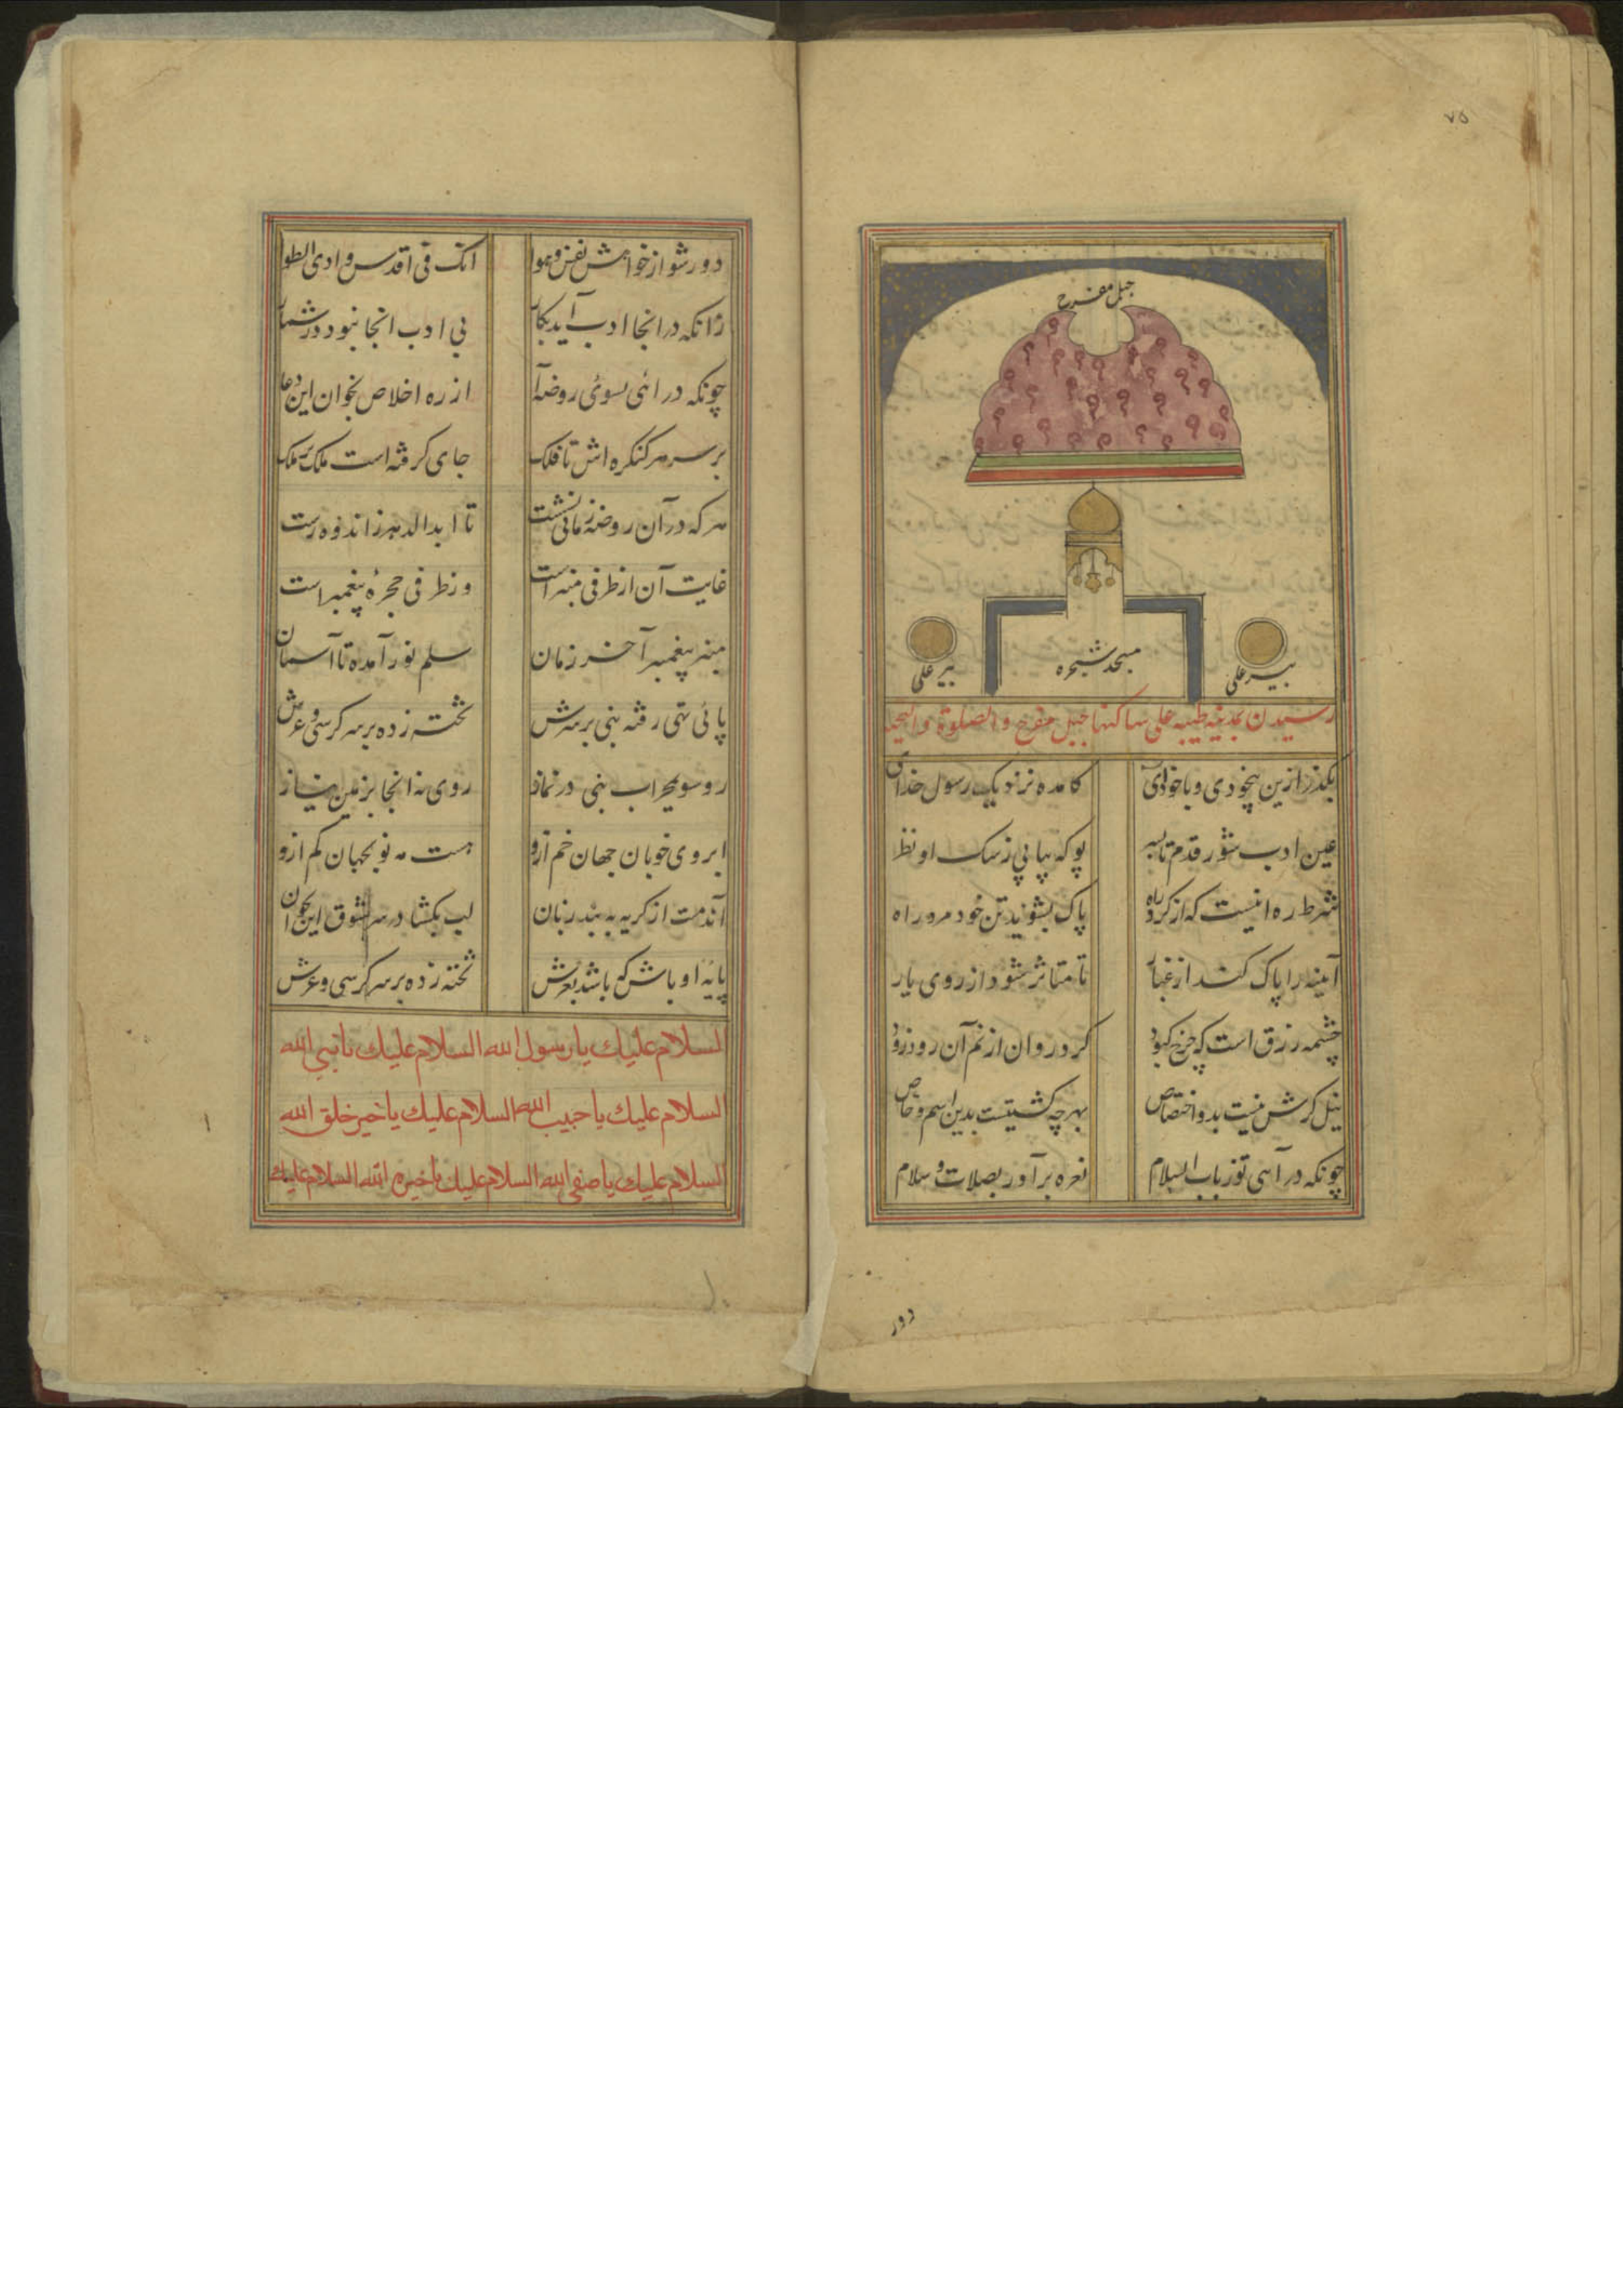 ۷۵
جبل مفرح
بیر علی
مسجد شجره
بیر علی
رسیدن بمدینه طیبه علی ساکنها جبل مفرح والصلوة والتحیه
بگذر ازین بیخودی و باخود آی کامده نزدیک رسول خدای
عین ادب شو ز قدم تا بسر بو که بیابی زسک او نظر
شرط ره اینست که از کرد راه پاک بشویید تن خود مرو راه
آینه را پاک کند از غبار تا متاثر شود از روی یار
چشمه رزق است که چرخ کبود کرد روان از نم آن رود رود
نیل کرش نیست بدو اختصاص بهر چه کشتست بدین اسم خاص
چونکه در آیی تو ز باب السلام نعره برآور بصلات و سلام
دور
دور شو از خواهش نفس و هوا انک فی اقدس وادی الطوا
زانکه در انجا ادب آید بکار بی ادب انجا نبود در شمار
چونکه در ائی بسوئی روضه آ از ره اخلاص بخوان این دعا
بر سر هر کنکره اش تا فلک جای کرفته است ملک بر ملک
هر که در آن روضه زمانی نشست تا ابد الدهر ز اندوه رست
غایت آن از طرفی منبر است وز طرفی حجرهٔ پیغمبر است
منبر پیغمبر آخر زمان سلم نور آمده تا آسمان
پائی تهی رفته بنی بر سرش تخت زده بر سر کرسی و عرش
رو سوی محراب بنی در نماز روی نه انجا بزمین نیاز
ابروی خوبان جهان خم ازو هست مه نو بجهان کم ازو
آندمت از کریه به بندد زبان لب بکشا در سر شوق این بخوان
پایه او باش که باشد بعرش تخته زده بر سر کرسی و عرش
السلام عليك يا رسول الله السلام عليك يا نبي الله
السلام عليك يا حبيب الله السلام عليك يا خير خلق الله
السلام عليك يا صفي الله السلام عليك يا خيرة الله السلام عليك